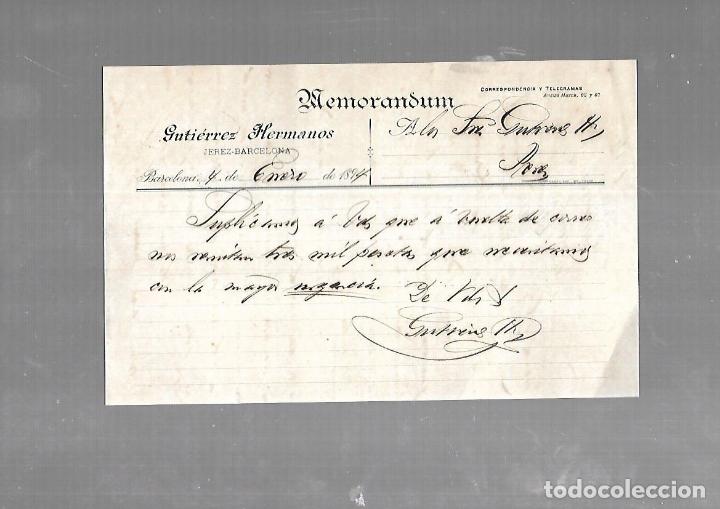 Memorandum
CORRESPONDENCIA Y TELEGRAMAS
Ausias March, 65 y 67
Gutiérrez Hermanos
JEREZ-BARCELONA
A los Sres Gutierrez Hs
Jerez
Barcelona, 4 de Enero de 1894
Suplicamos á Vds que á vuelta de correo
nos remitan tres mil pesetas que necesitamos
con la mayor urgencia. De Vds
Gutierrez Hs
todocoleccion.net